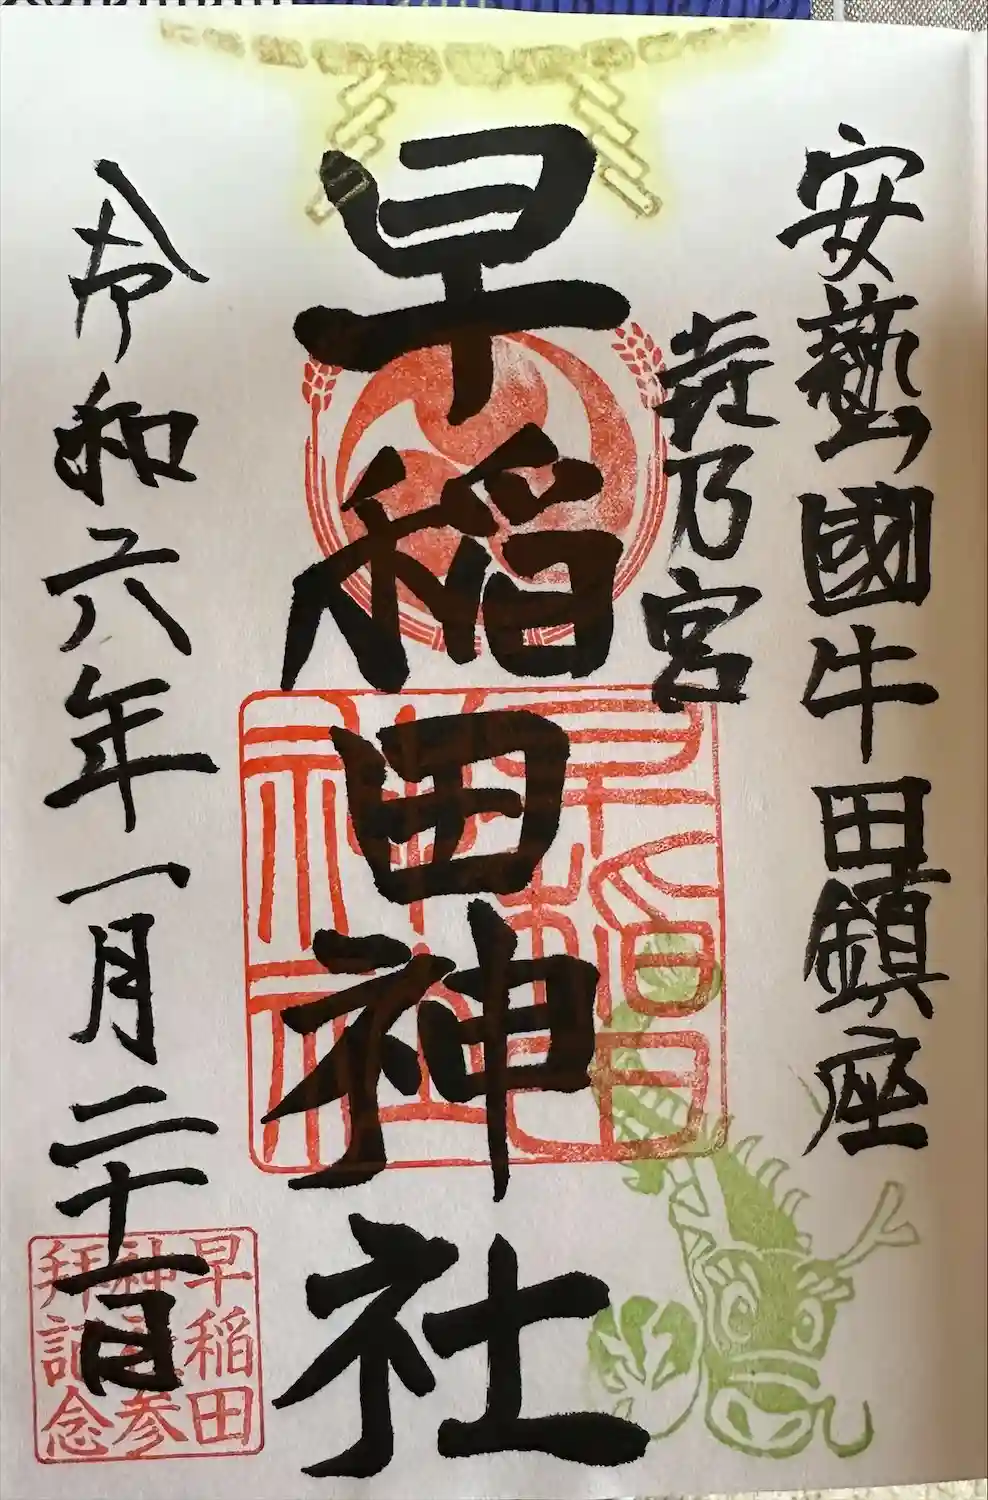 安藝國牛田鎮座
乃宮
早稲田神社
令和六年一月二十一日
早稲田
神社
早稲田
神社参
拝記念